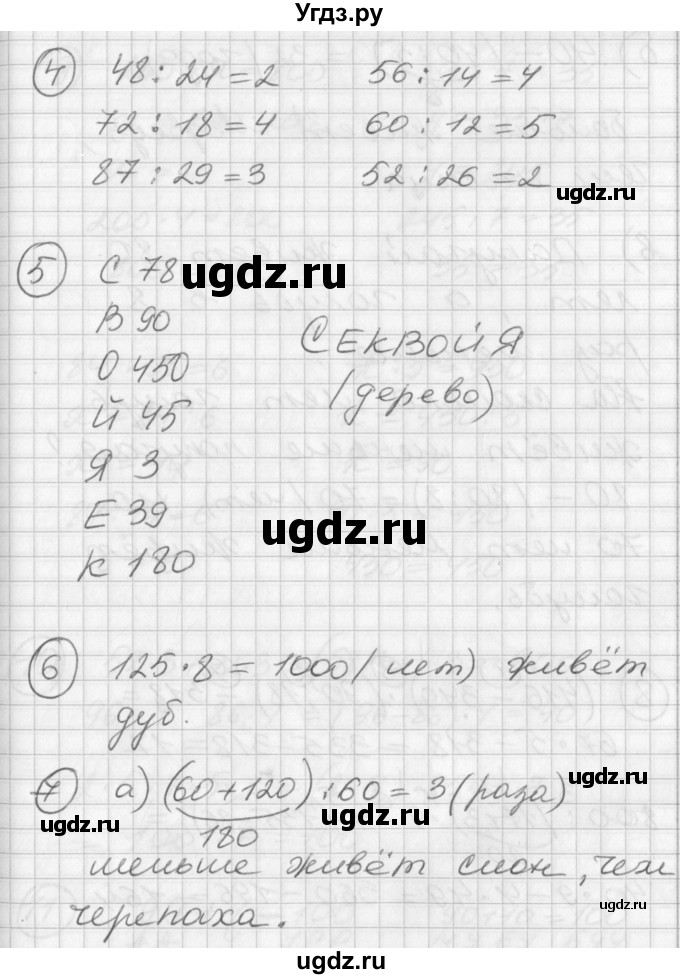 Угдз.ру
4 48 : 24 = 2 56 : 14 = 4
72 : 18 = 4 60 : 12 = 5
87 : 29 = 3 52 : 26 = 2
ugdz.ru
5 С 78
ugdz.ru
В 90
О 450
СЕКВОЙЯ
Й 45
(дерево)
Я 3
Е 39
ugdz.ru
К 180
6 125 · 8 = 1000 (лет) живёт
дуб.
ugdz.ru
7 а) (60 + 120) : 60 = 3 (раза)
ugdz.ru
ugdz.ru
180
меньше живёт слон, чем
ugdz.ru
черепаха.
ugdz.ru